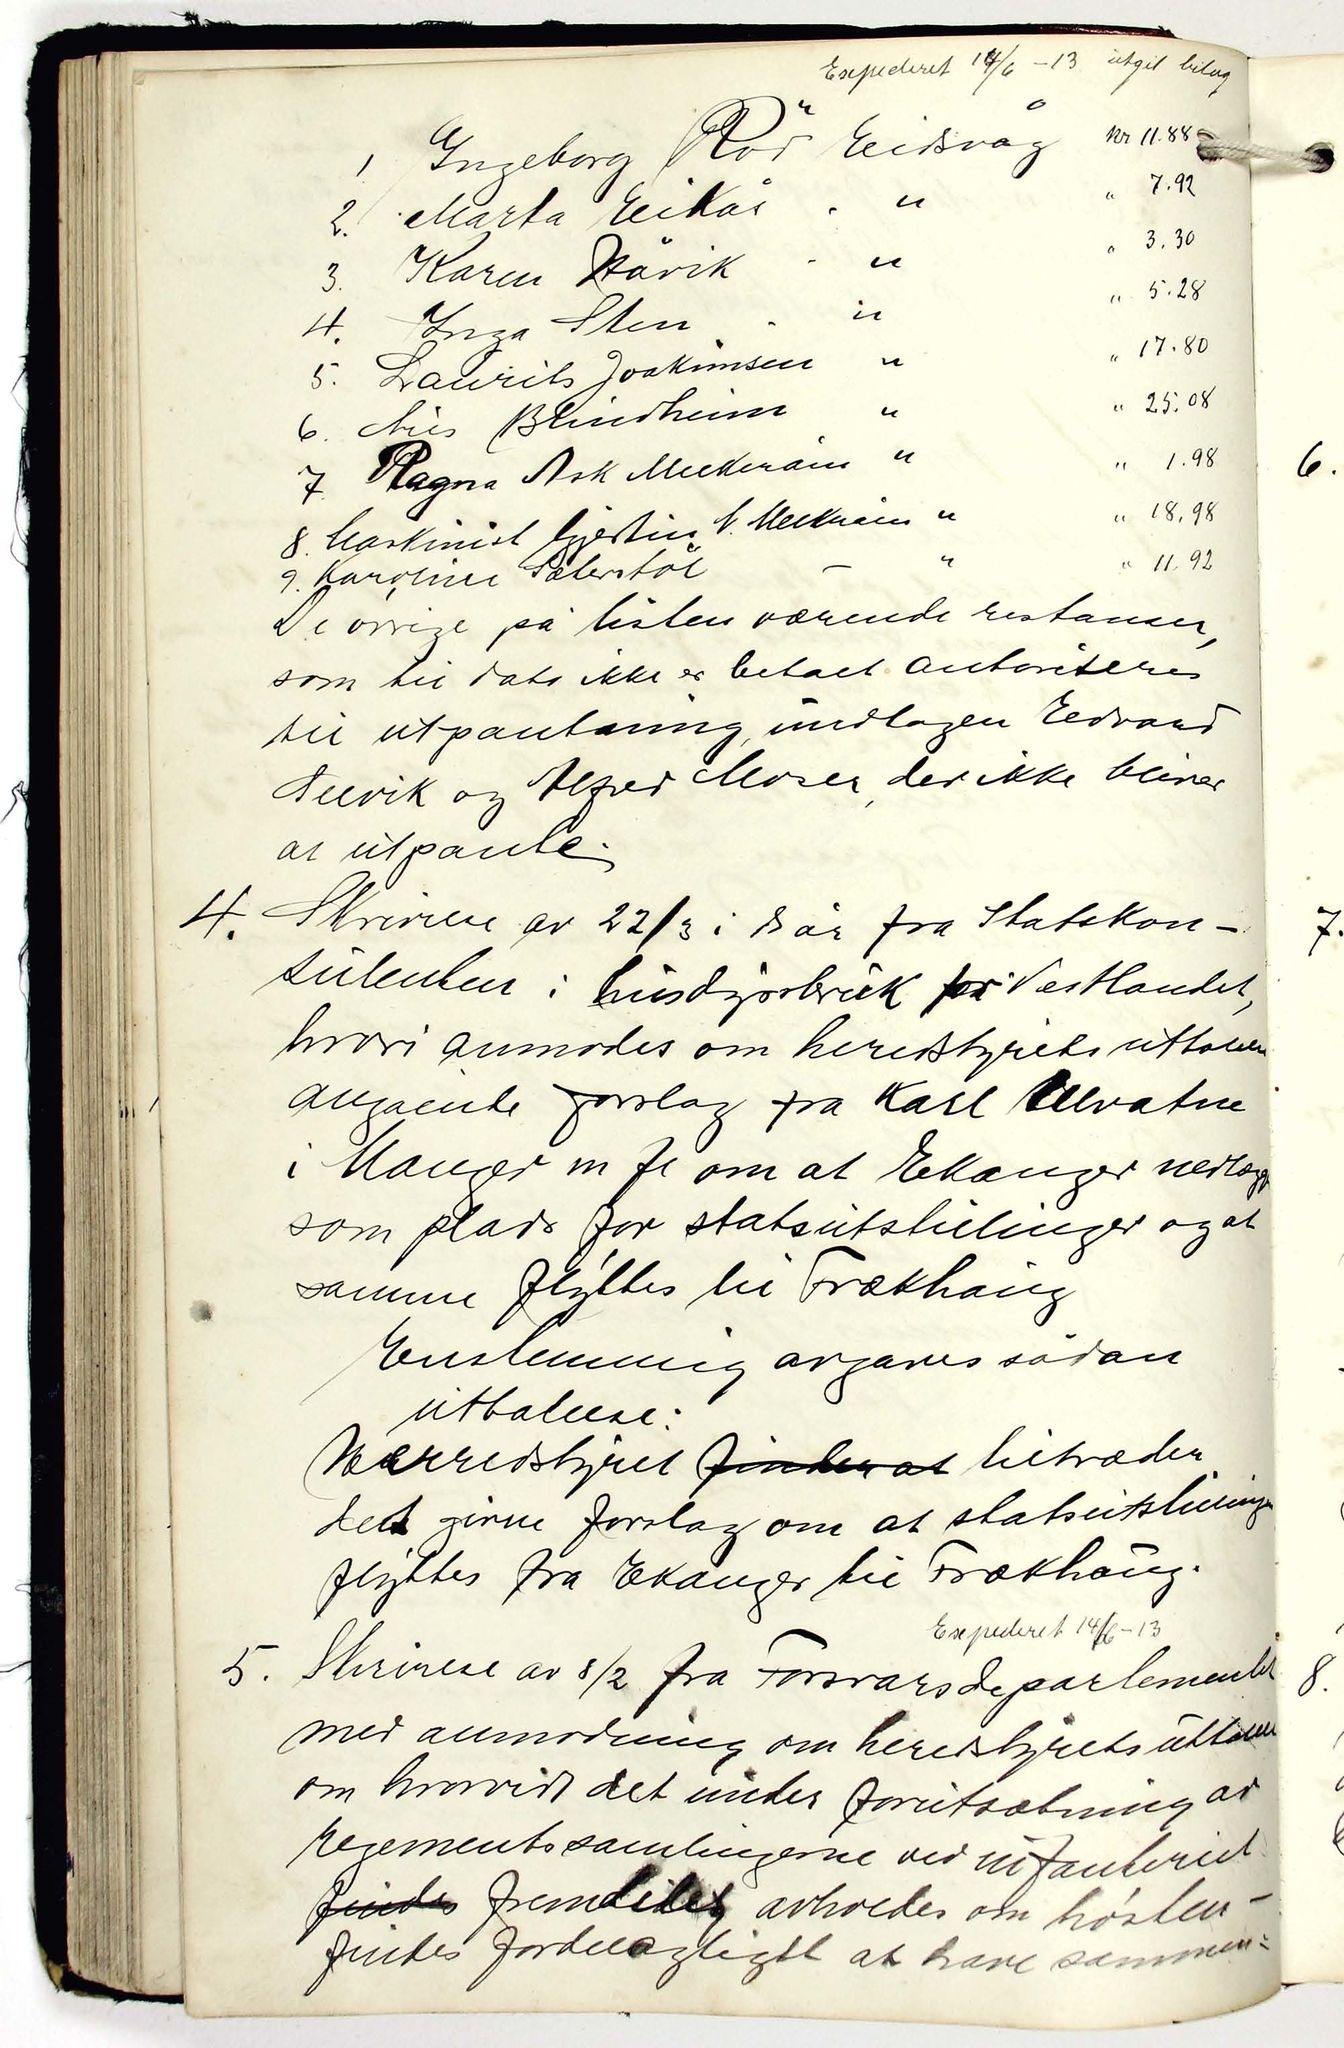 Expederet 14/6 - 13 utgit bilag
1 Ingeborg Röd Eidsvåg kr 11.88
2. Marta Eikås . " " 7.92
3. Karen Håvik . " " 3.30
4. Inga Sten . " " 5.28
5. Laurits Joakimsen " " 17.80
6. Nils Blindheim " " 25.08
7 Ragna Ask " " 1.98
8. Maskinist Gjertin N. " " 18.98
9. Karoline Sæterstöl — " " 11.92
De övrige på listen værende restanser,
som til dato ikke er betalt autoriseres
til utpantning, undtagen Edvard
og Alfred Moser, der ikke bliver
at utpante.
4. Skrivelse av 22/3 i års fra Statskon-
sulenten i husdyrbruk for Vestlandet,
hvori anmodes om heredstyrets uttalelse
angaaende forslag fra Karl Ulvatne
i Manger m fl om at Eikanger nedlægges
som plads for statsutstillinger og at
samme flyttes til Frækhaug
Enstemmig avgaves sådan
uttalelse:
Herredstyret finder at tiltræder
det givne forslag om at statsutstillinger
flyttes fra Eikanger til Frækhaug.
Expederet 14/6-13
5. Skrivelse av 8/2 fra Forsvarsdepartementet
med anmodning om heredstyrets uttalelse
om hvorvidt det under forutsætning av
regementssamlingerne ved infanteriet
findes fremdeles avholdes om hösten -
findes fordelagtigst at have sammen=
6.
7.
8.